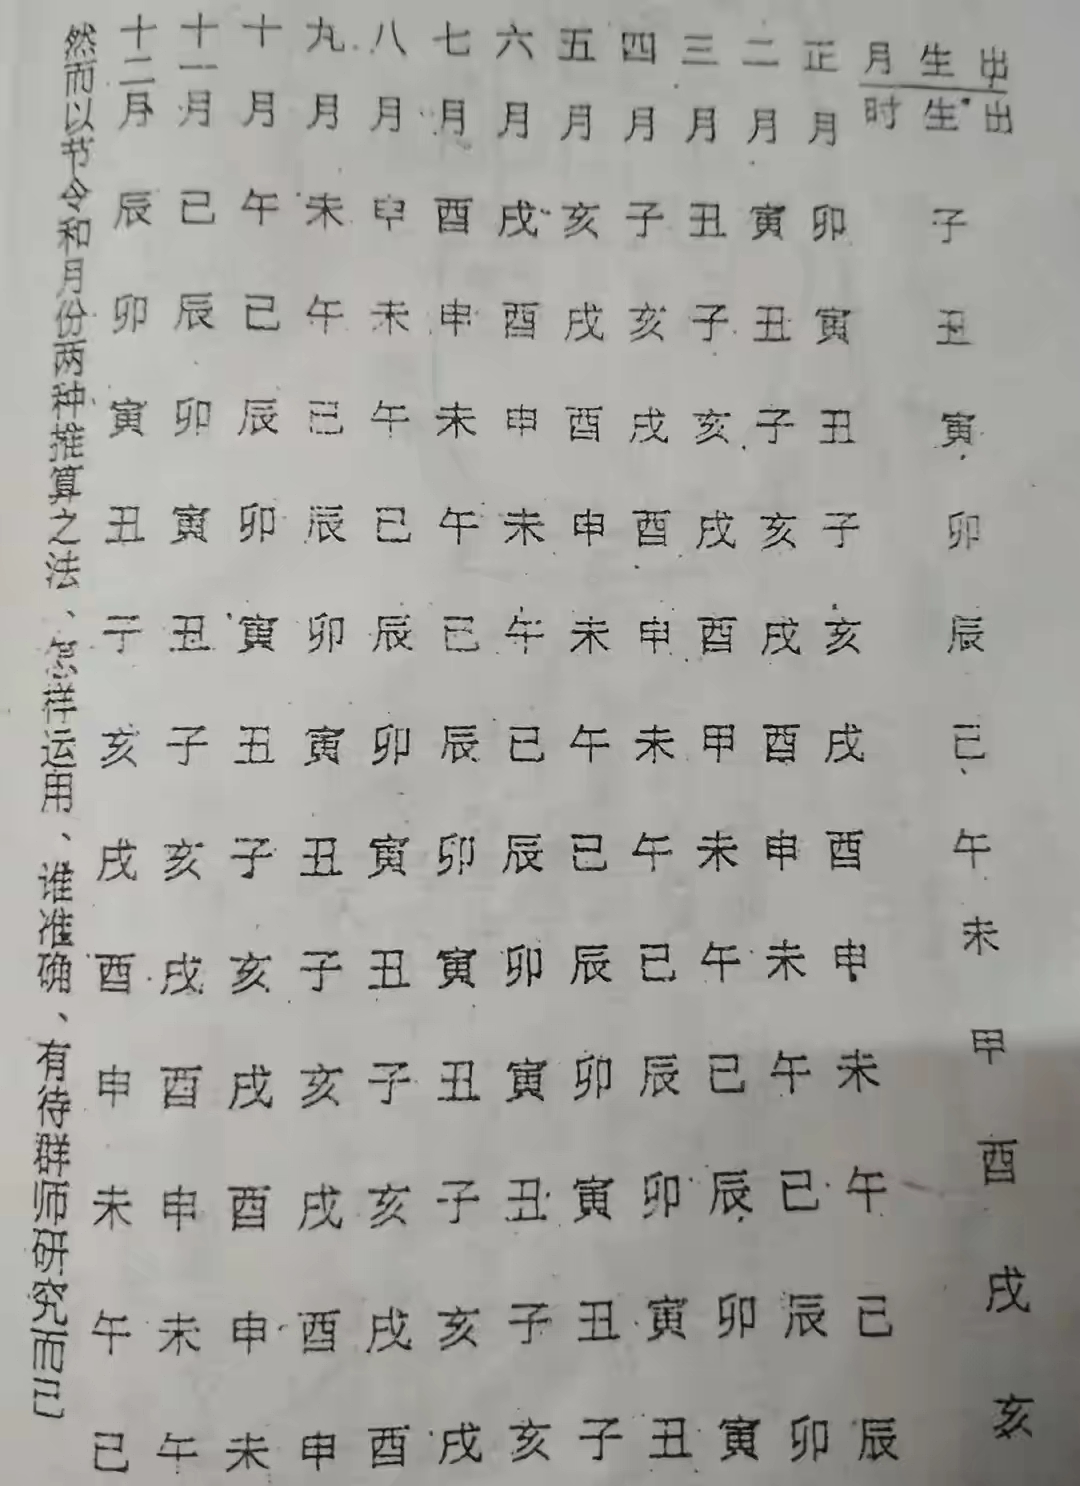 出生月
出生时
子 丑 寅 卯 辰 已 午 未 甲 酉 戌 亥
正月 卯 寅 丑 子 亥 戌 酉 申 未 午 已 辰
二月 寅 丑 子 亥 戌 酉 申 未 午 已 辰 卯
三月 丑 子 亥 戌 酉 甲 未 午 已 辰 卯 寅
四月 子 亥 戌 酉 申 未 午 已 辰 卯 寅 丑
五月 亥 戌 酉 申 未 午 已 辰 卯 寅 丑 子
六月 戌 酉 申 未 午 已 辰 卯 寅 丑 子 亥
七月 酉 申 未 午 已 辰 卯 寅 丑 子 亥 戌
八月 申 未 午 已 辰 卯 寅 丑 子 亥 戌 酉
九月 未 午 已 辰 卯 寅 丑 子 亥 戌 酉 申
十月 午 已 辰 卯 寅 丑 子 亥 戌 酉 申 未
十一月 已 辰 卯 寅 丑 子 亥 戌 酉 申 未 午
十二月 辰 卯 寅 丑 子 亥 戌 酉 申 未 午 已
然而以节令和月份两种推算之法、怎样运用、谁准确、有待群师研究而已